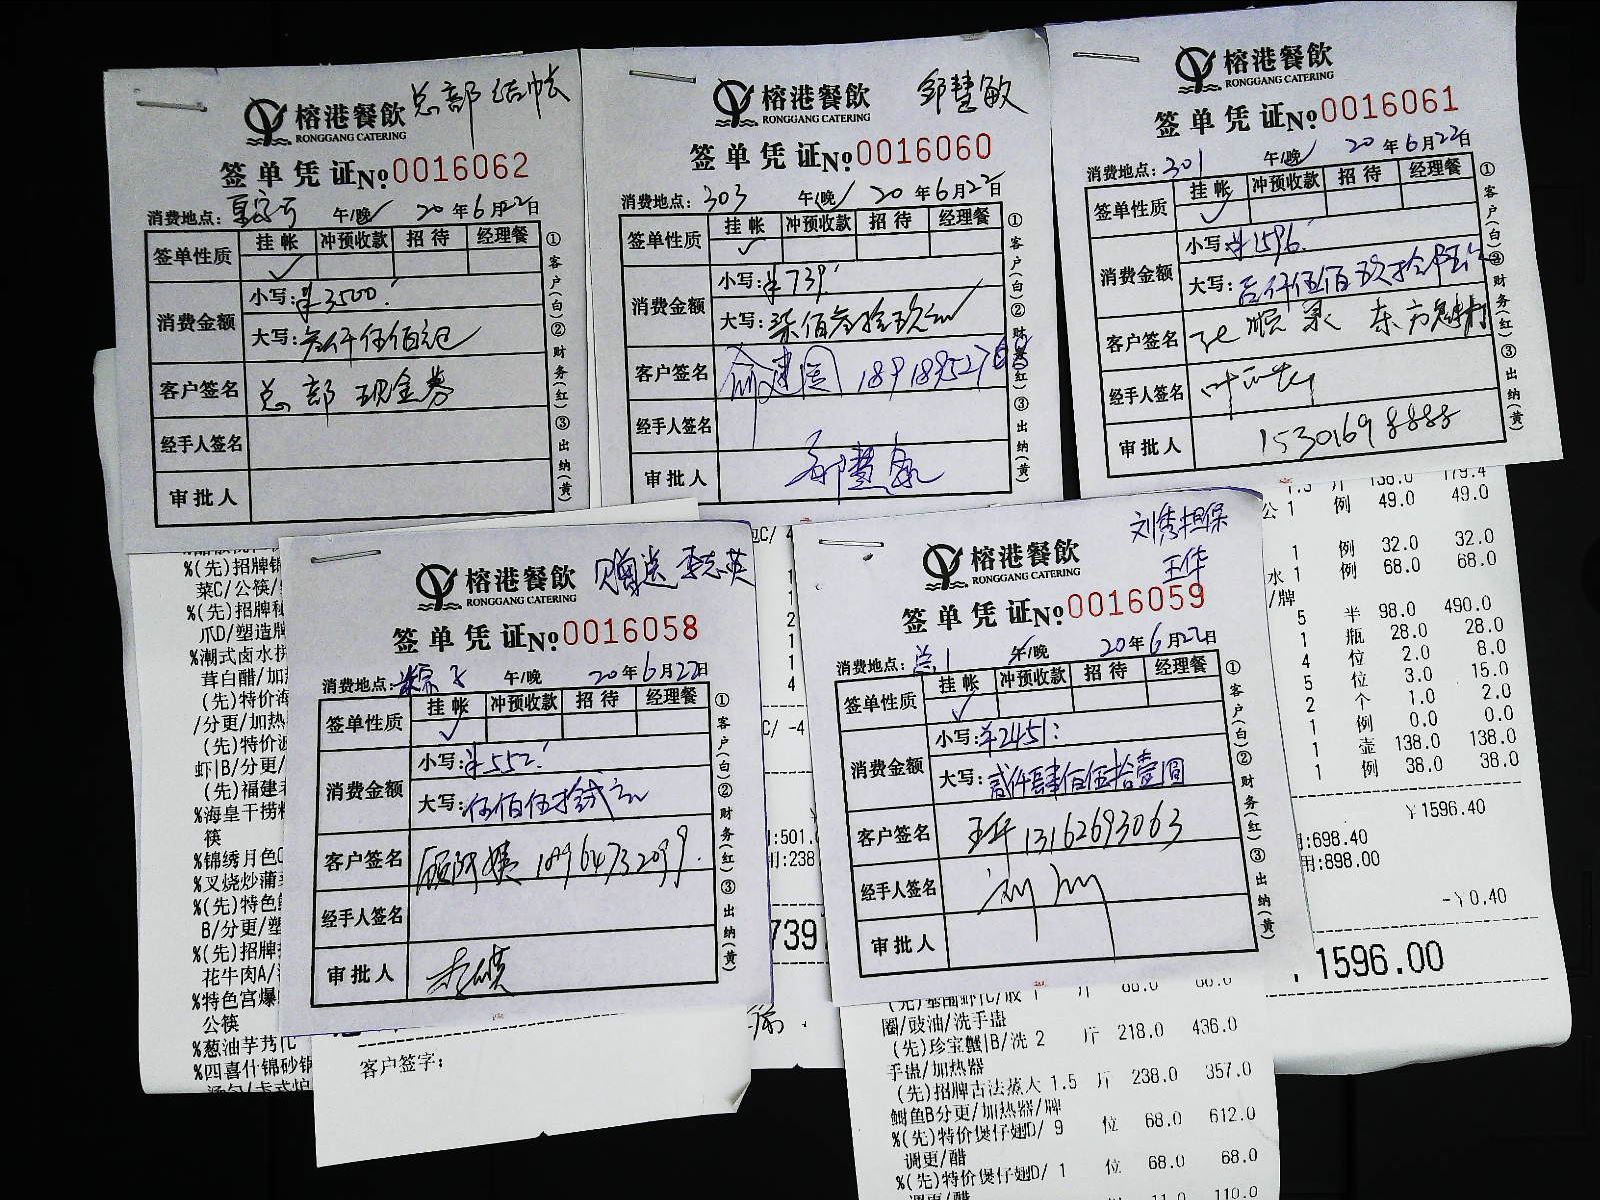 榕港餐飲
RONGGANG CATERING
总部结帐
签单凭证№0016062
消费地点: 午/晚 20年6月22日
签单性质 挂帐 冲预收款 招待 经理餐
✓
消费金额 小写:¥3500.
大写:叁仟伍佰元正
客户签名 总部现金券
经手人签名
审批人
①客户(白)②财务(红)③出纳(黄)
榕港餐飲
RONGGANG CATERING
邹慧敏
签单凭证№0016060
消费地点:303 午/晚 20年6月22日
签单性质 挂帐 冲预收款 招待 经理餐
✓
消费金额 小写:¥739.
大写:柒佰叁拾玖元
客户签名 俞建国
经手人签名
审批人 邹慧敏
①客户(白)②财务(红)③出纳(黄)
榕港餐飲
RONGGANG CATERING
签单凭证№0016061
消费地点:301 午/晚 20年6月22日
签单性质 挂帐 冲预收款 招待 经理餐
✓
消费金额 小写:¥1596.
大写:
客户签名 东方
经手人签名
审批人 15301698888
①客户(白)②财务(红)③出纳(黄)
榕港餐飲
RONGGANG CATERING
赠送 李志英
签单凭证№0016058
消费地点:粽子 午/晚 20年6月22日
签单性质 挂帐 冲预收款 招待 经理餐
✓
消费金额 小写:¥552.
大写:伍佰伍拾贰元
客户签名 顾阿姨 18964732099.
经手人签名
审批人
①客户(白)②财务(红)③出纳(黄)
榕港餐飲
RONGGANG CATERING
刘秀担保
王华
签单凭证№0016059
消费地点:总1 午/晚 20年6月22日
签单性质 挂帐 冲预收款 招待 经理餐
✓
消费金额 小写:¥2451:
大写:贰仟肆佰伍拾壹圆
客户签名 王华 13162693063
经手人签名
审批人
①客户(白)②财务(红)③出纳(黄)
%(先)招牌锦
菜C/公筷/
%(先)招牌秘
爪D/塑造牌
%潮式卤水拼
茸白醋/加热
(先)特价海
/分更/加热
(先)特价
虾|B/分更/
(先)福建
%海皇干捞粉
筷
%锦绣月色
%叉烧炒蒲
%(先)特色
B/分更/塑
%(先)招牌
花牛肉A/
%特色宫爆
公筷
%葱油芋艿
%四喜什锦砂锅
客户签字:
:501.
用:238
739
公 1 例 49.0 49.0
1 例 32.0 32.0
水 1 例 68.0 68.0
/牌
5 半 98.0 490.0
1 瓶 28.0 28.0
4 位 2.0 8.0
5 位 3.0 15.0
2 个 1.0 2.0
1 例 0.0 0.0
1 壶 138.0 138.0
1 例 38.0 38.0
¥1596.40
:698.40
用:898.00
-¥0.40
1596.00
圈/豉油/洗手盅
(先)珍宝蟹|B/洗 2 斤 218.0 436.0
手盅/加热器
(先)招牌古法蒸大 1.5 斤 238.0 357.0
鲥鱼B分更/加热器/牌
%(先)特价煲仔翅D/ 9 位 68.0 612.0
调更/醋
%(先)特价煲仔翅D/ 1 位 68.0 68.0
调更/醋 11.0 110.0